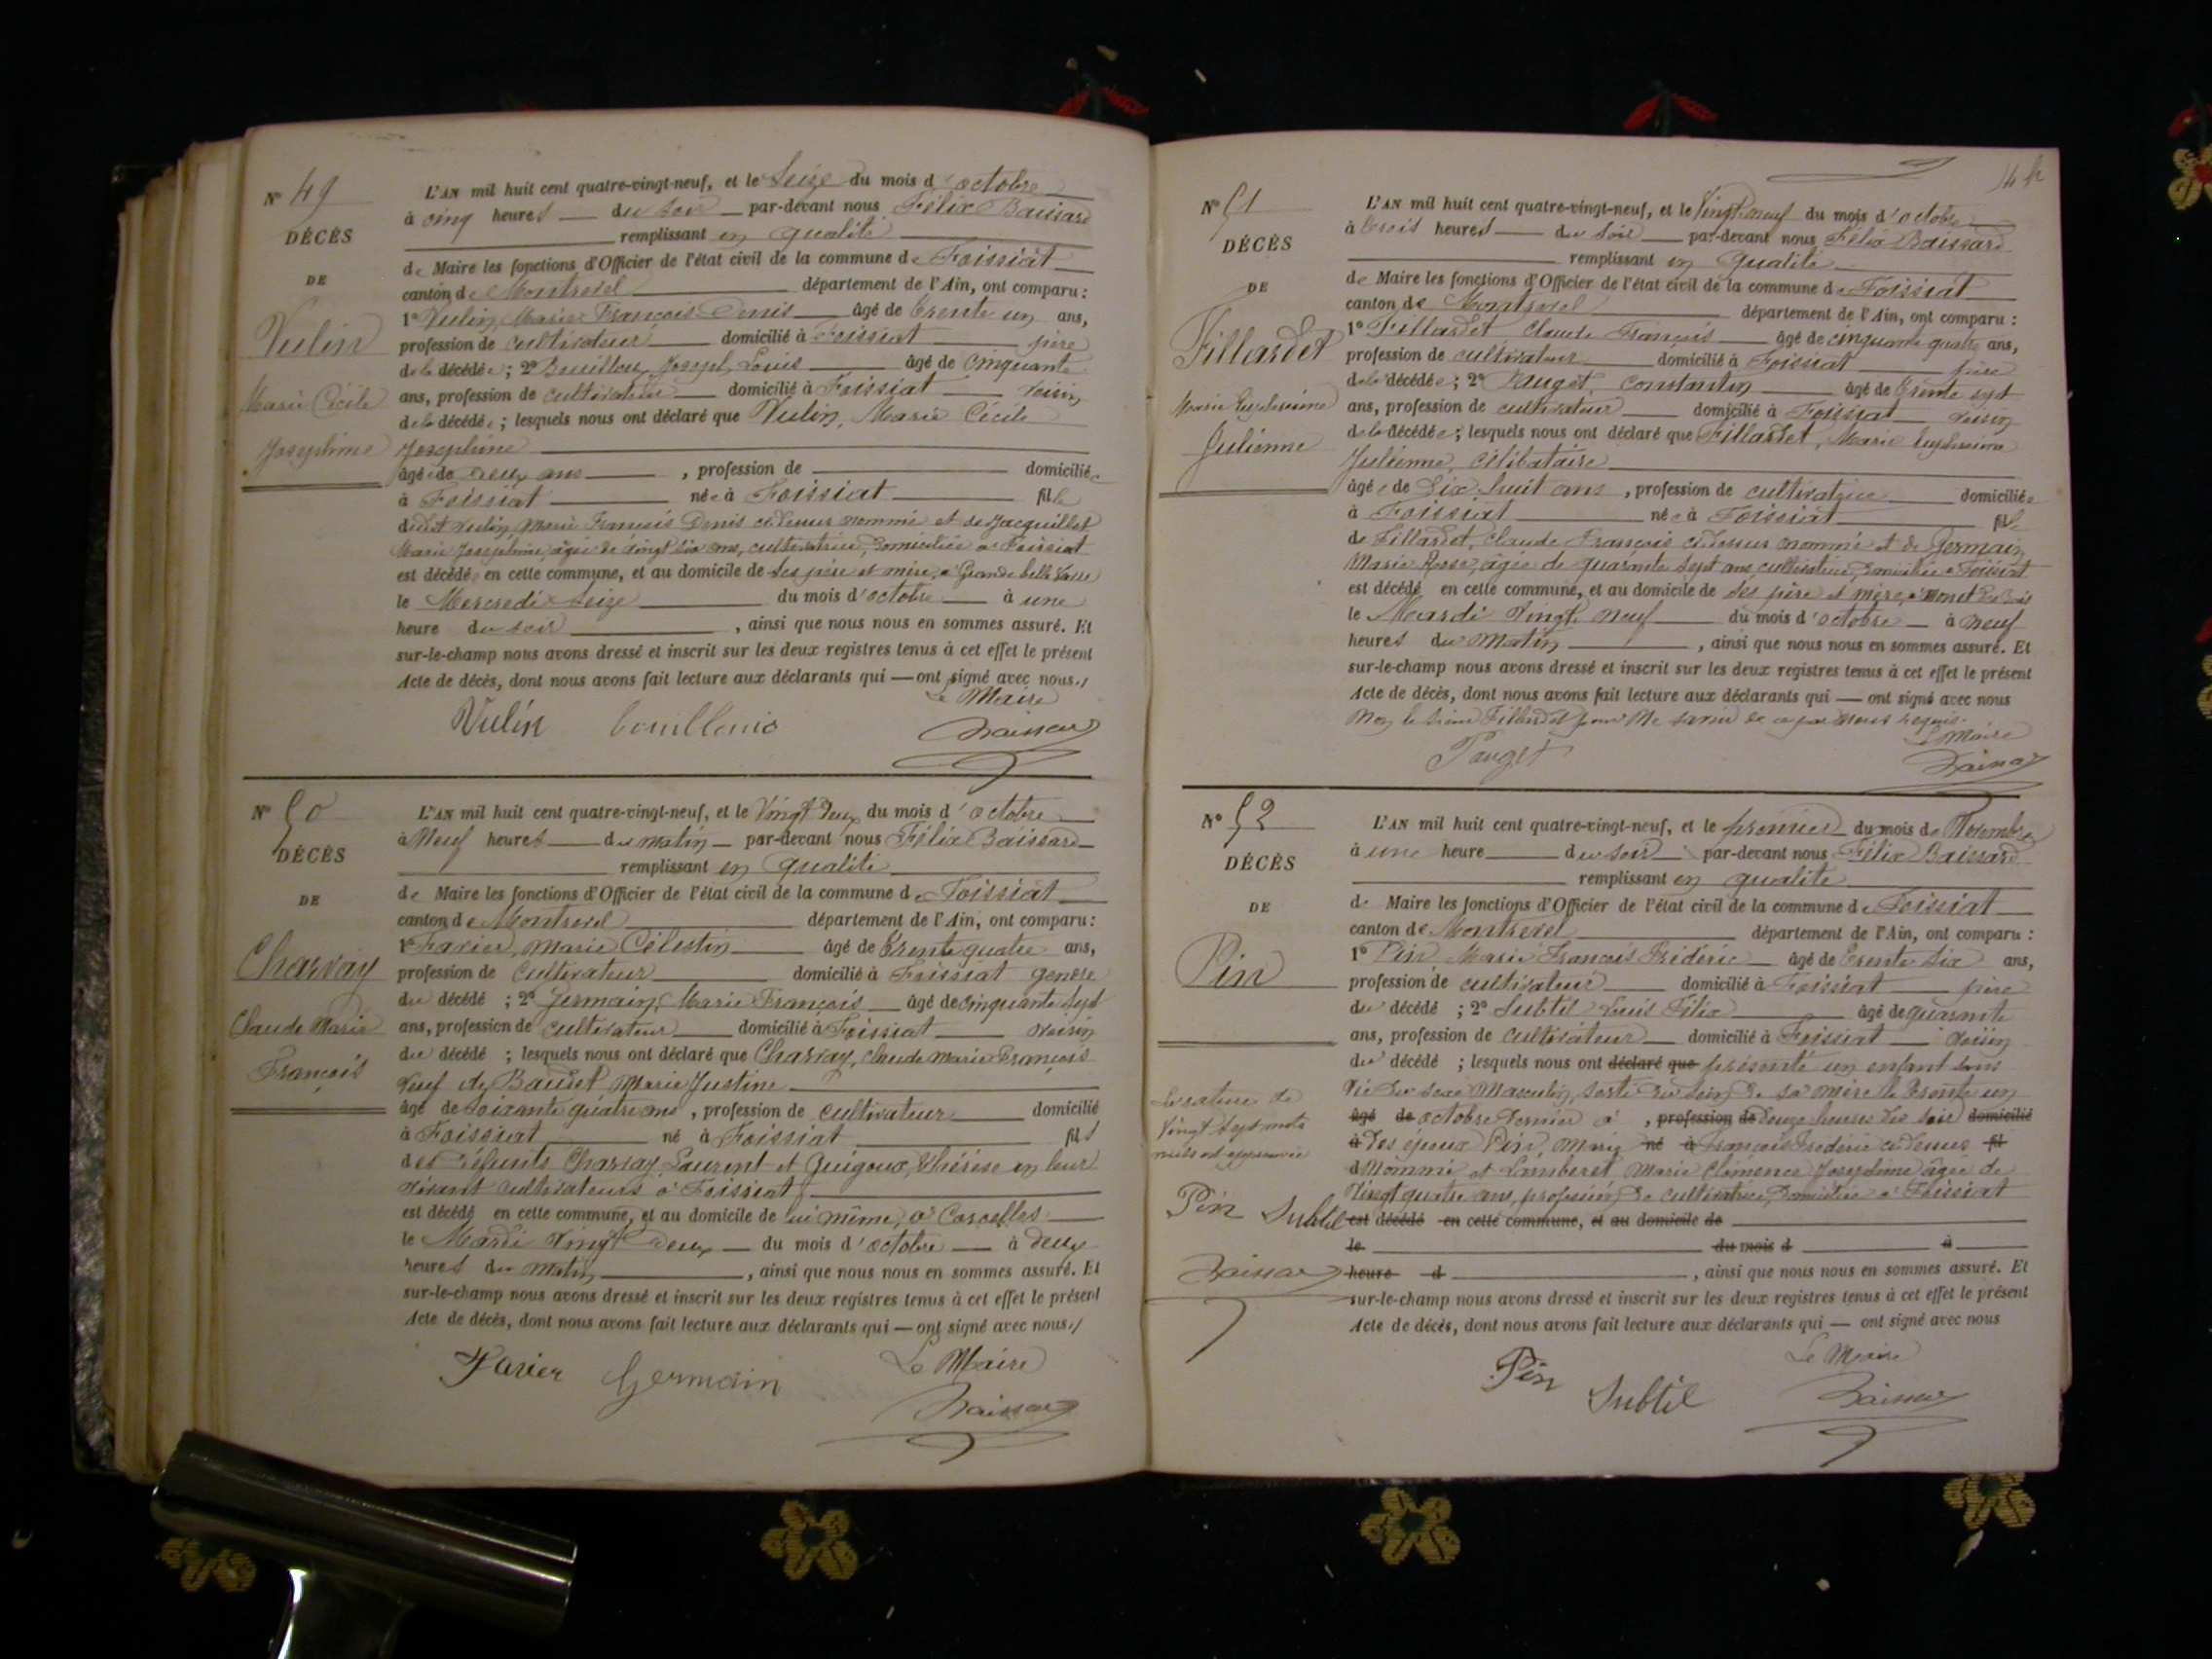 N° 49
DÉCÈS
DE
Vulin
Marie Cécile
Joséphine
L'AN mil huit cent quatre-vingt-neuf, et le Seize du mois d'octobre
à cinq heures du soir par-devant nous Félix Baissard
remplissant en qualité
de Maire les fonctions d'Officier de l'état civil de la commune de Foissiat
canton de Montrevel département de l'Ain, ont comparu :
1° Vulin, Marie François Denis âgé de trente un ans,
profession de cultivateur domicilié à Foissiat père
de la décédée ; 2° Bouilloux Joseph Louis âgé de cinquante
ans, profession de cultivateur domicilié à Foissiat voisin
de la décédée ; lesquels nous ont déclaré que Vulin, Marie Cécile
Joséphine
âgée de deux ans , profession de domiciliée
à Foissiat née à Foissiat fille
dudit Vulin, Marie François Denis ci-dessus nommé et de Jacquillet
Marie Joséphine, âgée de vingt six ans, cultivatrice, domiciliée à Foissiat
est décédée en cette commune, et au domicile de ses père et mère, à Grande belle
le Mercredi seize du mois d'octobre à une
heure du soir , ainsi que nous nous en sommes assuré. Et
sur-le-champ nous avons dressé et inscrit sur les deux registres tenus à cet effet le présent
Acte de décès, dont nous avons fait lecture aux déclarants qui — ont signé avec nous./
Le Maire
Vulin
Baissard
N° 50
DÉCÈS
DE
Charvay
Claude Marie
François
L'AN mil huit cent quatre-vingt-neuf, et le Vingt deux du mois d'octobre
à Neuf heures du matin par-devant nous Félix Baissard
remplissant en qualité
de Maire les fonctions d'Officier de l'état civil de la commune de Foissiat
canton de Montrevel département de l'Ain, ont comparu :
1° Favier, Marie Célestin âgé de trente quatre ans,
profession de cultivateur domicilié à Foissiat gendre
du décédé ; 2° Germain, Marie François âgé de cinquante sept
ans, profession de cultivateur domicilié à Foissiat voisin
du décédé ; lesquels nous ont déclaré que Charvay, Claude Marie François
veuf de Baudet Marie Justine
âgé de soixante quatre ans , profession de cultivateur domicilié
à Foissiat né à Foissiat fils
des défunts Charvay, Laurent et Guigoux, Thérèse en leur
vivant cultivateurs à Foissiat
est décédé en cette commune, et au domicile de lui même, à Corcelles
le Mardi vingt deux du mois d'octobre à deux
heures du matin , ainsi que nous nous en sommes assuré. Et
sur-le-champ nous avons dressé et inscrit sur les deux registres tenus à cet effet le présent
Acte de décès, dont nous avons fait lecture aux déclarants qui — ont signé avec nous./
Favier Germain Le Maire
Baissard
N° 51
DÉCÈS
DE
Fillardet
Marie Euphrosine
Julienne
L'AN mil huit cent quatre-vingt-neuf, et le Vingt neuf du mois d'octobre
à trois heures du soir par-devant nous Félix Baissard
remplissant en qualité
de Maire les fonctions d'Officier de l'état civil de la commune de Foissiat
canton de Montrevel département de l'Ain, ont comparu :
1° Fillardet Claude François âgé de cinquante quatre ans,
profession de cultivateur domicilié à Foissiat père
de la décédée ; 2° Pauget Constantin âgé de trente sept
ans, profession de cultivateur domicilié à Foissiat voisin
de la décédée ; lesquels nous ont déclaré que Fillardet, Marie Euphrosine
Julienne, célibataire
âgée de dix huit ans , profession de cultivatrice domiciliée
à Foissiat née à Foissiat fille
de Fillardet, Claude François ci-dessus nommé et de Germain,
Marie Rose, âgée de quarante sept ans cultivatrice, domiciliée à Foissiat
est décédé en cette commune, et au domicile de ses père et mère, à
le Mardi vingt neuf du mois d'octobre à neuf
heures du matin , ainsi que nous nous en sommes assuré. Et
sur-le-champ nous avons dressé et inscrit sur les deux registres tenus à cet effet le présent
Acte de décès, dont nous avons fait lecture aux déclarants qui — ont signé avec nous
non le sieur Fillardet pour ne savoir de ce par nous requis
Le Maire
Pauget Baissard
N° 52
DÉCÈS
DE
Pin
L'AN mil huit cent quatre-vingt-neuf, et le premier du mois de Novembre
à une heure du soir par-devant nous Félix Baissard
remplissant en qualité
de Maire les fonctions d'Officier de l'état civil de la commune de Foissiat
canton de Montrevel département de l'Ain, ont comparu :
1° Pin Marie François Frédéric âgé de trente six ans,
profession de cultivateur domicilié à Foissiat père
du décédé ; 2° Subtil Louis Félix âgé de quarante
ans, profession de cultivateur domicilié à Foissiat voisin
du décédé ; lesquels nous ont déclaré que présenté un enfant sans
vie du sexe masculin, sorti du sein de sa mère le trente un
âgé de octobre dernier à , profession de douze heures du soir domicilié
à des époux Pin, Marie né à François Frédéric ci-dessus fil
d nommé et Lambéret Marie Clémence Joséphine âgée de
vingt quatre ans, profession de cultivatrice, domiciliée à Foissiat
est décédé en cette commune, et au domicile de
le du mois d à
heure d , ainsi que nous nous en sommes assuré. Et
sur-le-champ nous avons dressé et inscrit sur les deux registres tenus à cet effet le présent
Acte de décès, dont nous avons fait lecture aux déclarants qui — ont signé avec nous
Le Maire
Pin Subtil Baissard
La rature de
vingt sept mots
nuls est approuvée
Pin Subtil
Baissard